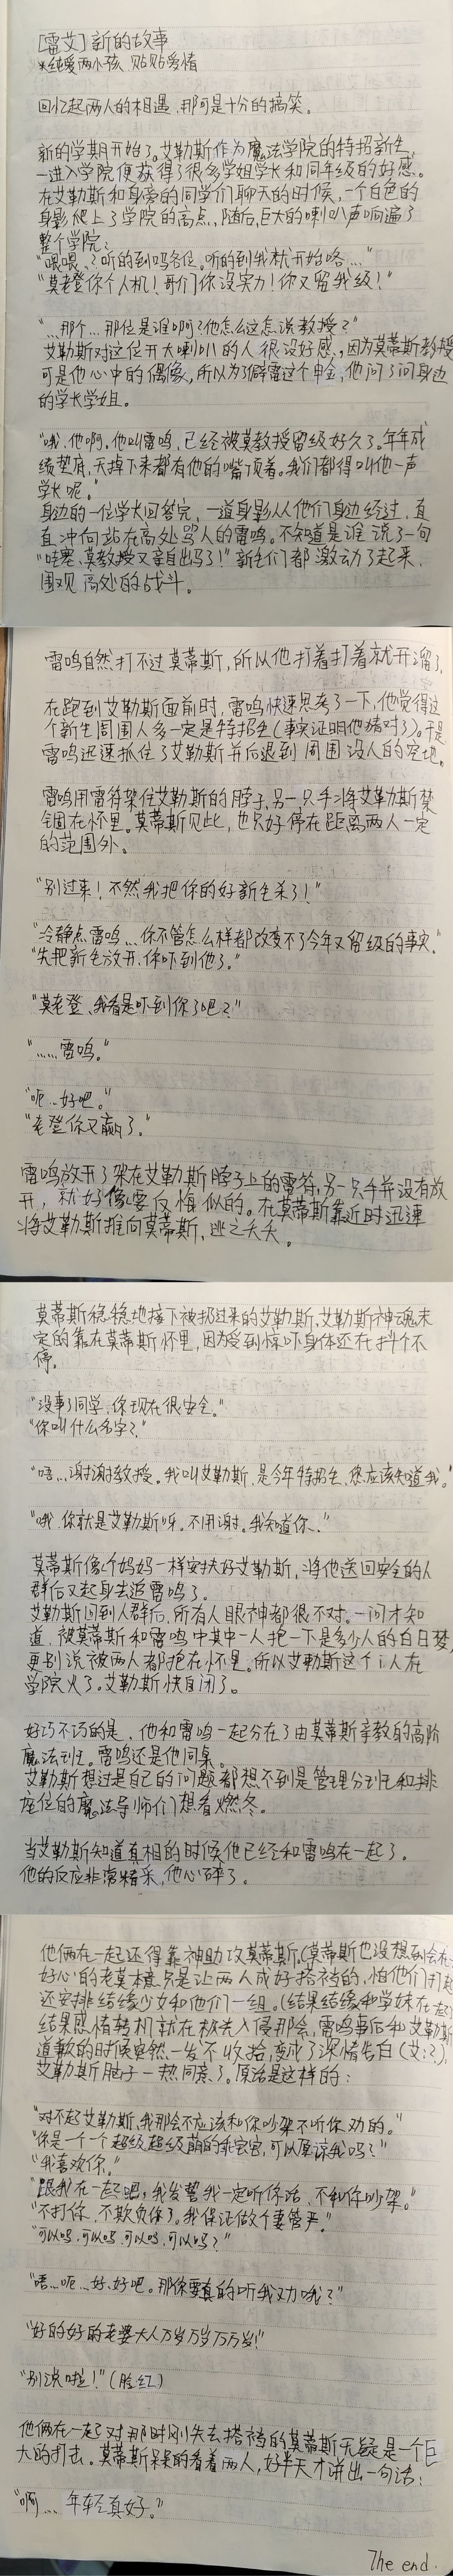 [雷艾]新的故事
*纯爱两小孩，贴贴爱情
回忆起两人的相遇，那可是十分的搞笑。
新的学期开始了。艾勒斯作为魔法学院的特招新生，
一进入学院便获得了很多学姐学长和同年级的好感。
在艾勒斯和身旁的同学们聊天的时候，一个白色的
身影爬上了学院的高点，随后，巨大的喇叭声响遍了
整个学院：
“喂喂..？听的到吗各位。听的到我就开始咯...”
“莫老登你个人机！哥们你没实力！你又留我级！”
“...那个...那位是谁啊？他怎么这么说教授？”
艾勒斯对这位开大喇叭的人很没好感，因为莫蒂斯教授
可是他心中的偶像，所以为了避雷这个，他问了问身边
的学长学姐。
“哦，他啊。他叫雷鸣，已经被莫教授留级好久了。年年成
绩垫底，天掉下来都有他的嘴顶着。我们都得叫他一声
学长呢。”
身边的一位学长回答完，一道身影从他们身边经过，直
直冲向站在高处骂人的雷鸣。不知道是谁说了一句
“哇塞，莫教授又亲自出马了！”新生们都激动了起来，
围观高处的战斗。
雷鸣自然打不过莫蒂斯，所以他打着打着就开溜了。
在跑到艾勒斯面前时，雷鸣快速思考了一下，他觉得这
个新生周围人多一定是特招生（事实证明他猜对了）。于是
雷鸣迅速抓住了艾勒斯并后退到周围没人的空地。
雷鸣用雷符架住艾勒斯的脖子，另一只手将艾勒斯禁
锢在怀里。莫蒂斯见此，也只好停在距离两人一定
的范围外。
“别过来！不然我把你的好新生杀了！”
“冷静点雷鸣...你不管怎么样都改变不了今年又留级的事实。”
“先把新生放开，你吓到他了。”
“莫老登，我看是吓到你了吧？”
“......雷鸣。”
“呃...好吧。”
“老登你又赢了。”
雷鸣放开了架在艾勒斯脖子上的雷符，另一只手并没有放
开，就好像要反悔似的。在莫蒂斯靠近时迅速
将艾勒斯推向莫蒂斯，逃之夭夭。
莫蒂斯稳稳地接下被扔过来的艾勒斯，艾勒斯神魂未
定的靠在莫蒂斯怀里，因为受到惊吓身体还在抖个不
停。
“没事了同学，你现在很安全。”
“你叫什么名字？”
“唔...谢谢教授。我叫艾勒斯，是今年特招生，您应该知道我。”
“哦，你就是艾勒斯呀。不用谢。我知道你。”
莫蒂斯像个妈妈一样安抚好艾勒斯，将他送回安全的人
群后又起身去追雷鸣了。
艾勒斯回到人群后，所有人眼神都很不对。一问才知
道，被莫蒂斯和雷鸣中其中一人抱一下是多少人的白日梦，
更别说被两人都抱在怀里。所以艾勒斯这个i人在
学院火了。艾勒斯快自闭了。
好巧不巧的是，他和雷鸣一起分在了由莫蒂斯亲教的高阶
魔法班。雷鸣还是他同桌。
艾勒斯想过是自己的问题都想不到是管理分班和排
座位的魔法导师们想看燃冬。
当艾勒斯知道真相的时候他已经和雷鸣在一起了。
他的反应非常精采，他心碎了。
他俩在一起还得靠神助攻莫蒂斯。（莫蒂斯也没想到会在一
好心的老莫本意只是让两人成好搭裆的，怕他们打起
还安排结缘少女和他们一组。（结果结缘和学妹在一起
结果感情转机就在极光入侵那会，雷鸣事后和艾勒斯
道歉的时候突然一发不收拾，变成了深情告白（艾：？）。
艾勒斯脑子一热，同意了。原话是这样的：
“对不起艾勒斯，我那会不应该和你吵架不听你劝的。”
“你是一个一个超级超级萌的乖宝宝，可以原谅我吗？”
“我喜欢你。”
“跟我在一起吧，我发誓我一定听你话，不和你吵架。”
“不打你，不欺负你了。我保证做个妻管严。”
“可以吗，可以吗，可以吗，可以吗？”
“唔...呃...好，好吧。那你要真的听我劝哦？”
“好的好的老婆大人万岁万岁万万岁！”
“别说啦！”（脸红）
他俩在一起对那时刚失去搭裆的莫蒂斯无疑是一个巨
大的打击。莫蒂斯呆呆的看着两人，好半天才讲出一句话：
“啊...年轻真好。”
The end.